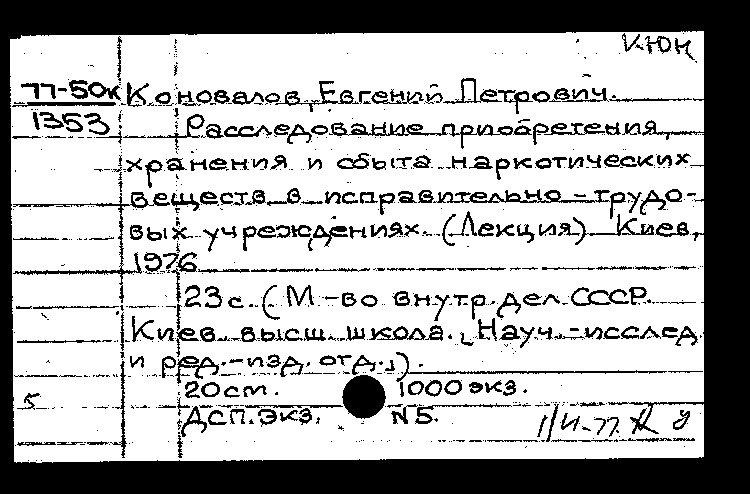 КЮН
77-50к Коновалов, Евгений Петрович.
1353 Расследование приобретения,
хранения и сбыта наркотических
веществ в исправительно-трудо-
вых учреждениях. (Лекция). Киев,
1976
23с. (М-во внутр. дел СССР.
Киев. высш. школа. Науч.-исслед.
и ред.-изд. отд.).
5 20см. 1000 экз.
ДСП. экз. N 5.